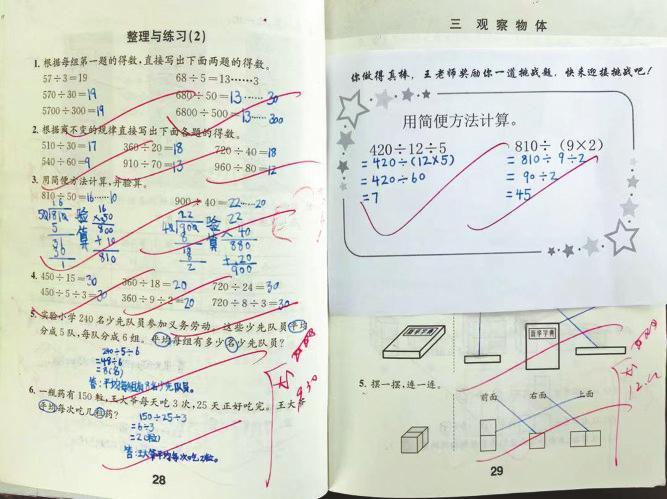 整理与练习(2)
1. 根据每组第一题的得数,直接写出下面两题的得数。
57÷3=19 68÷5=13……3
570÷30=19 680÷50=13……30
5700÷300=19 6800÷500=13……300
2. 根据商不变的规律直接写出下面各题的得数。
510÷30=17 360÷20=18 720÷40=18
540÷60=9 910÷70=13 960÷80=12
3. 用简便方法计算,并验算。
810÷50=16……10 900÷40=22……20
验算
验算
4. 450÷15=30 360÷18=20 720÷24=30
450÷5÷3=30 360÷9÷2=20 720÷8÷3=30
5. 实验小学240名少先队员参加义务劳动。这些少先队员平均
分成5队,每队分成6组。平均每组有多少名少先队员?
240÷5÷6
=48÷6
=8(名)
答:平均每组有8名少先队员。
6. 一瓶药有150粒,王大爷每天吃3次,25天正好吃完。王大爷
平均每次吃几粒药?
150÷25÷3
=6÷3
=2(粒)
答:王大爷平均每次吃2粒。
28
三 观察物体
你做得真棒,王老师奖励你一道挑战题,快来迎接挑战吧!
用简便方法计算。
420÷12÷5 810÷(9×2)
=420÷(12×5) =810÷9÷2
=420÷60 =90÷2
=7 =45
新华字典
5. 摆一摆,连一连。
前面 右面 上面
29